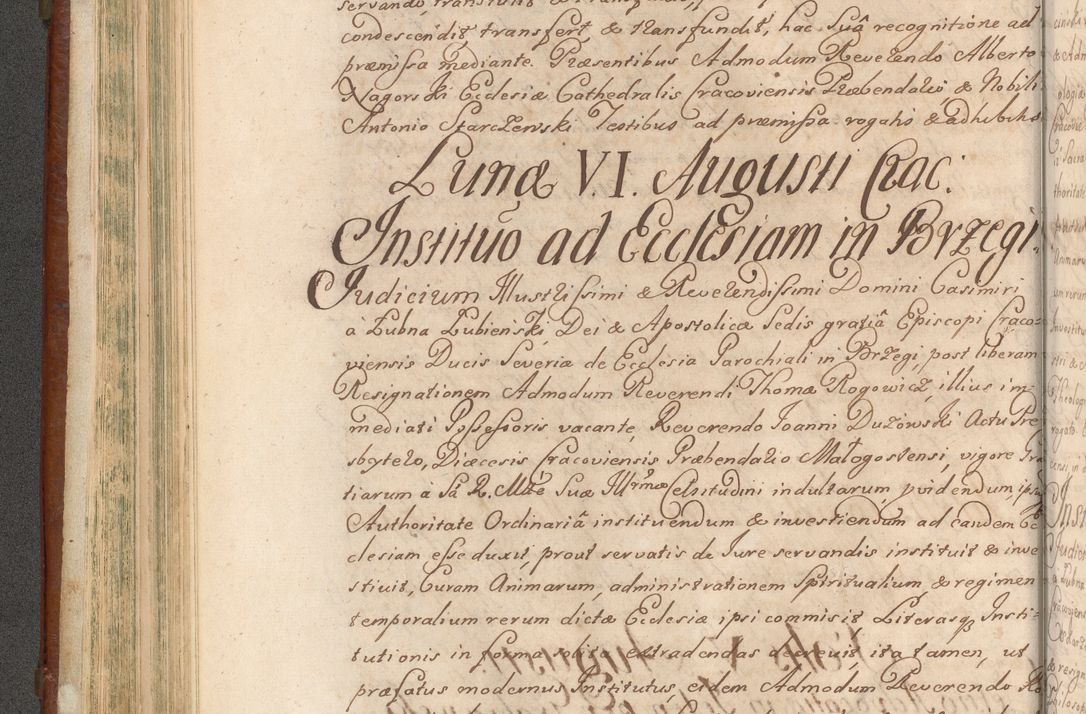 condescendit, transfert, & transfundit, hac suâ recognitione ad
præmissa mediante. Præsentibus Admodum Reverendo Alberto
Nagorski Ecclesiæ Cathedralis Cracoviensis Præbendario, & Nobili
Antonio Starczewski Testibus ad præmissa rogatis & adhibitis
Lunæ VI. Augusti Crac:
Institutio ad Ecclesiam in Brzegi.
Judicium Illustrissimi & Reverendissimi Domini Casimiri
à Łubna Łubieński, Dei & Apostolicæ Sedis gratiâ Episcopi Craco-
viensis Ducis Severiæ de Ecclesia Parochiali in Brzegi, post liberam
Resignationem Admodum Reverendi Thomæ Rogowicz, illius im-
mediati Possessoris vacante, Reverendo Joanni Dużowski Actu Pre
sbytero, Diæcesis Cracoviensis Præbendario Małogostensi, vigore Gra
tiarum à Sâ R. Mtte Suæ Illrmæ Celsitudini indultarum, pvidendum, ipsu
Authoritate Ordinariâ instituendum & investiendum ad eandem Ec
clesiam esse duxit, prout servatis de Jure servandis instituit & inve
stivit, Curam Animarum, administrationem Spiritualium & regimen
temporalium rerum dictæ Ecclesiæ ipsi commisit Literasq Insti-
tutionis in forma solita extradendas decrevit, ita tamen, ut
præfatus modernus Institutus, eidem Admodum Reverendo Ro